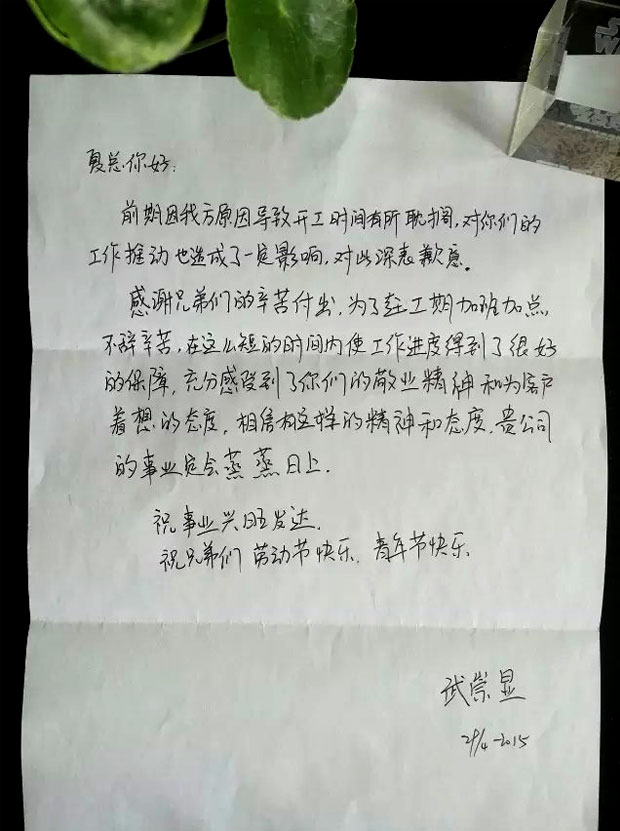 夏总你好:
前期因我方原因导致开工时间有所耽搁,对你们的
工作推动也造成了一定影响,对此深表歉意。
感谢兄弟们的辛苦付出,为了赶工期加班加点,
不辞辛苦,在这么短的时间内使工作进度得到了很好
的保障,充分感受到了你们的敬业精神和为客户
着想的态度,相信有这样的精神和态度,贵公司
的事业定会蒸蒸日上.
祝事业兴旺发达.
祝兄弟们 劳动节快乐、青年节快乐
武崇显
29/4-2015